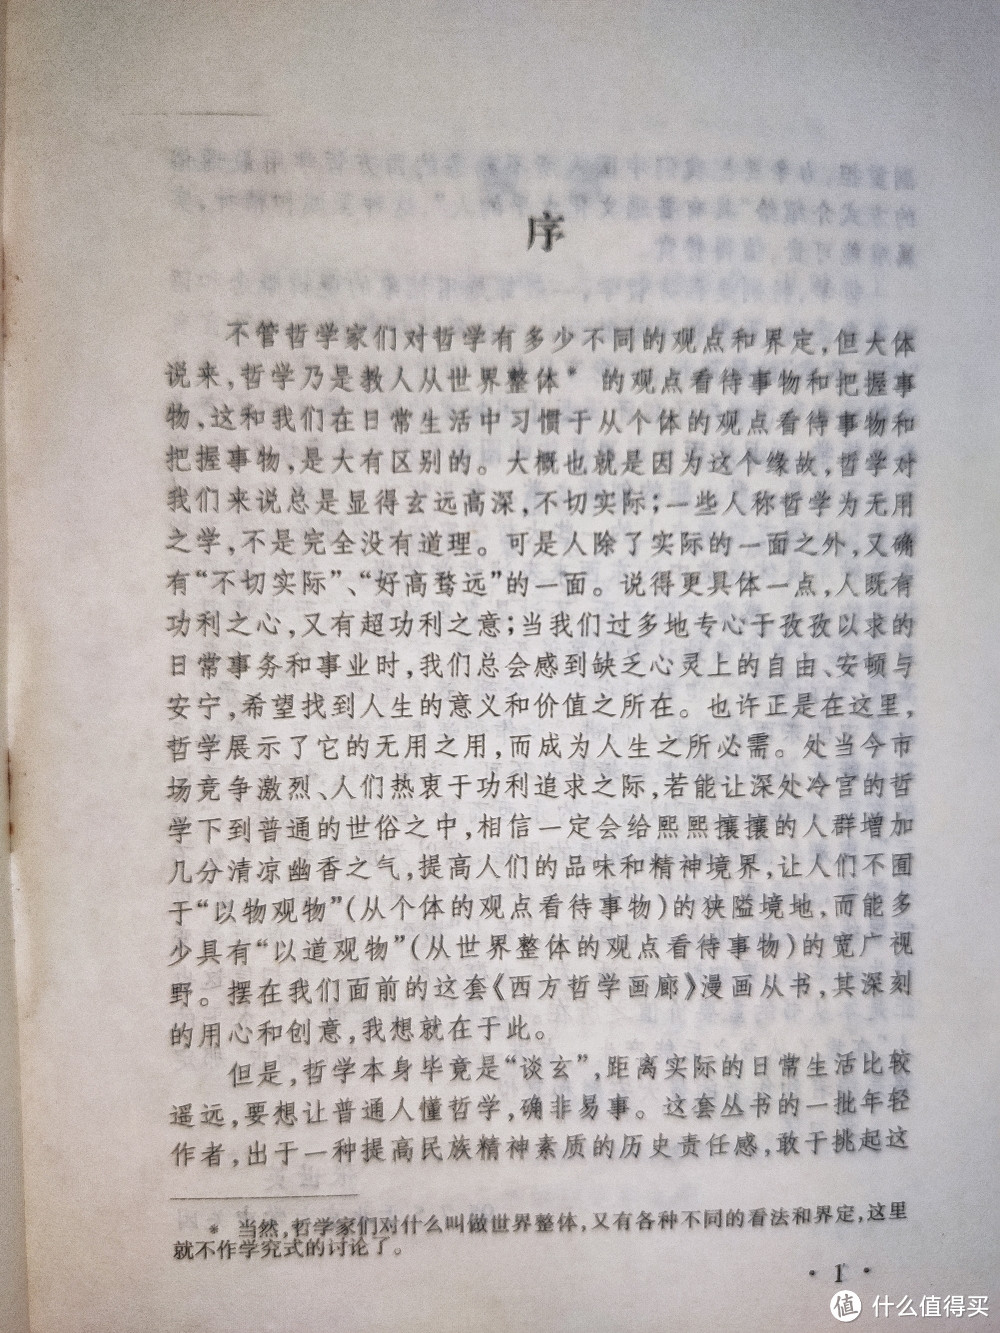 序
不管哲学家们对哲学有多少不同的观点和界定,但大体
说来,哲学乃是教人从世界整体* 的观点看待事物和把握事
物、这和我们在日常生活中习惯于从个体的观点看待事物和
把握事物,是大有区别的。大概也就是因为这个缘故,哲学对
我们来说总是显得玄远高深,不切实际;一些人称哲学为无用
之学,不是完全没有道理。可是人除了实际的一面之外,又确
有“不切实际”、“好高骛远”的一面。说得更具体一点,人既有
功利之心,又有超功利之意;当我们过多地专心于孜孜以求的
日常事务和事业时,我们总会感到缺乏心灵上的自由、安顿与
安宁,希望找到人生的意义和价值之所在。也许正是在这里,
哲学展示了它的无用之用,而成为人生之所必需。处当今市
场竞争激烈、人们热衷于功利追求之际,若能让深处冷宫的哲
学下到普通的世俗之中,相信一定会给熙熙攘攘的人群增加
几分清凉幽香之气,提高人们的品味和精神境界,让人们不囿
于“以物观物”(从个体的观点看待事物)的狭隘境地,而能多
少具有“以道观物”(从世界整体的观点看待事物)的宽广视
野。摆在我们面前的这套《西方哲学画廊》漫画丛书,其深刻
的用心和创意,我想就在于此。
但是,哲学本身毕竟是“谈玄”,距离实际的日常生活比较
遥远,要想让普通人懂哲学,确非易事。这套丛书的一批年轻
作者,出于一种提高民族精神素质的历史责任感,敢于挑起这
* 当然,哲学家们对什么叫做世界整体,又有各种不同的看法和界定,这里
就不作学究式的讨论了。
· 1 ·
值 什么值得买